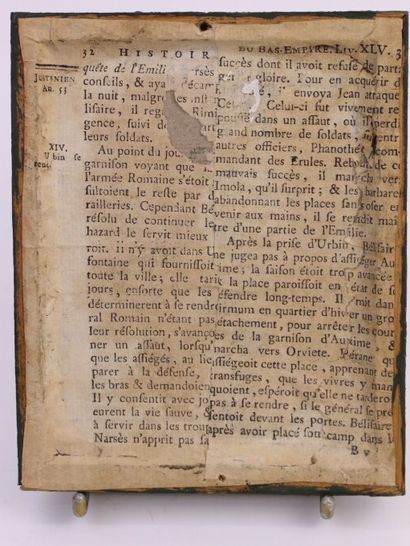 32 HISTOIR
JUSTINIEN
An. 53
quête de l'Emili
conseils, & aya
la nuit, malgré
lisaire, il reg Rimi
gence, suivi de
leurs soldats.
XIV.
Urbin se
rend.
Au point du jou
garnison voyant que
l'armée Romaine s'étoit
sultoient le reste par d
railleries. Cependant Bé
résolu de continuer le
hazard le servit mieux
roit. il n'y avoit dans U
fontaine qui fournissoit
toute la ville; elle tarit
jours, ensorte que les
déterminerent à se rendr
ral Romain n'étant pas
leur résolution, s'avanço
ner un assaut, lorsqu'
que les assiégés, au lie
parer à la défense,
les bras & demandoien
Il y consentit avec jo
eurent la vie sauve, &
à servir dans les trou
Narsès n'apprit pas sa
DU BAS-EMPIRE. LIV. XLV. 3
succès dont il avoit refusé de part
ger gloire. Pour en acquérir d
il envoya Jean attaque
Celui-ci fut vivement re
poussé dans un assaut, où il perdi
grand nombre de soldats, entr
autres officiers, Phanothée com
mandant des Erules. Rebuté de c
mauvais succès, il marcha ver
Imola, qu'il surprit; & les barbare
abandonnant les places sans oser e
venir aux mains, il se rendit mai
tre d'une partie de l'Emilie.
Après la prise d'Urbin, Bélisair
ne jugea pas à propos d'assiéger Au
ime; la saison étoit trop avancée
la place paroissoit en état de se
éfendre long-temps. Il mit dan
irmum en quartier d'hiver un gro
étachement, pour arrêter les cour
es de la garnison d'Auxime, &
marcha vers Orviete. Pérane qui
ssiégeoit cette place, apprenant de
transfuges, que les vivres y man
quoient, espéroit qu'elle ne tardero
pas à se rendre, si le général se pré
sentoit devant les portes. Bélisaire
après avoir placé son camp dans l
B v